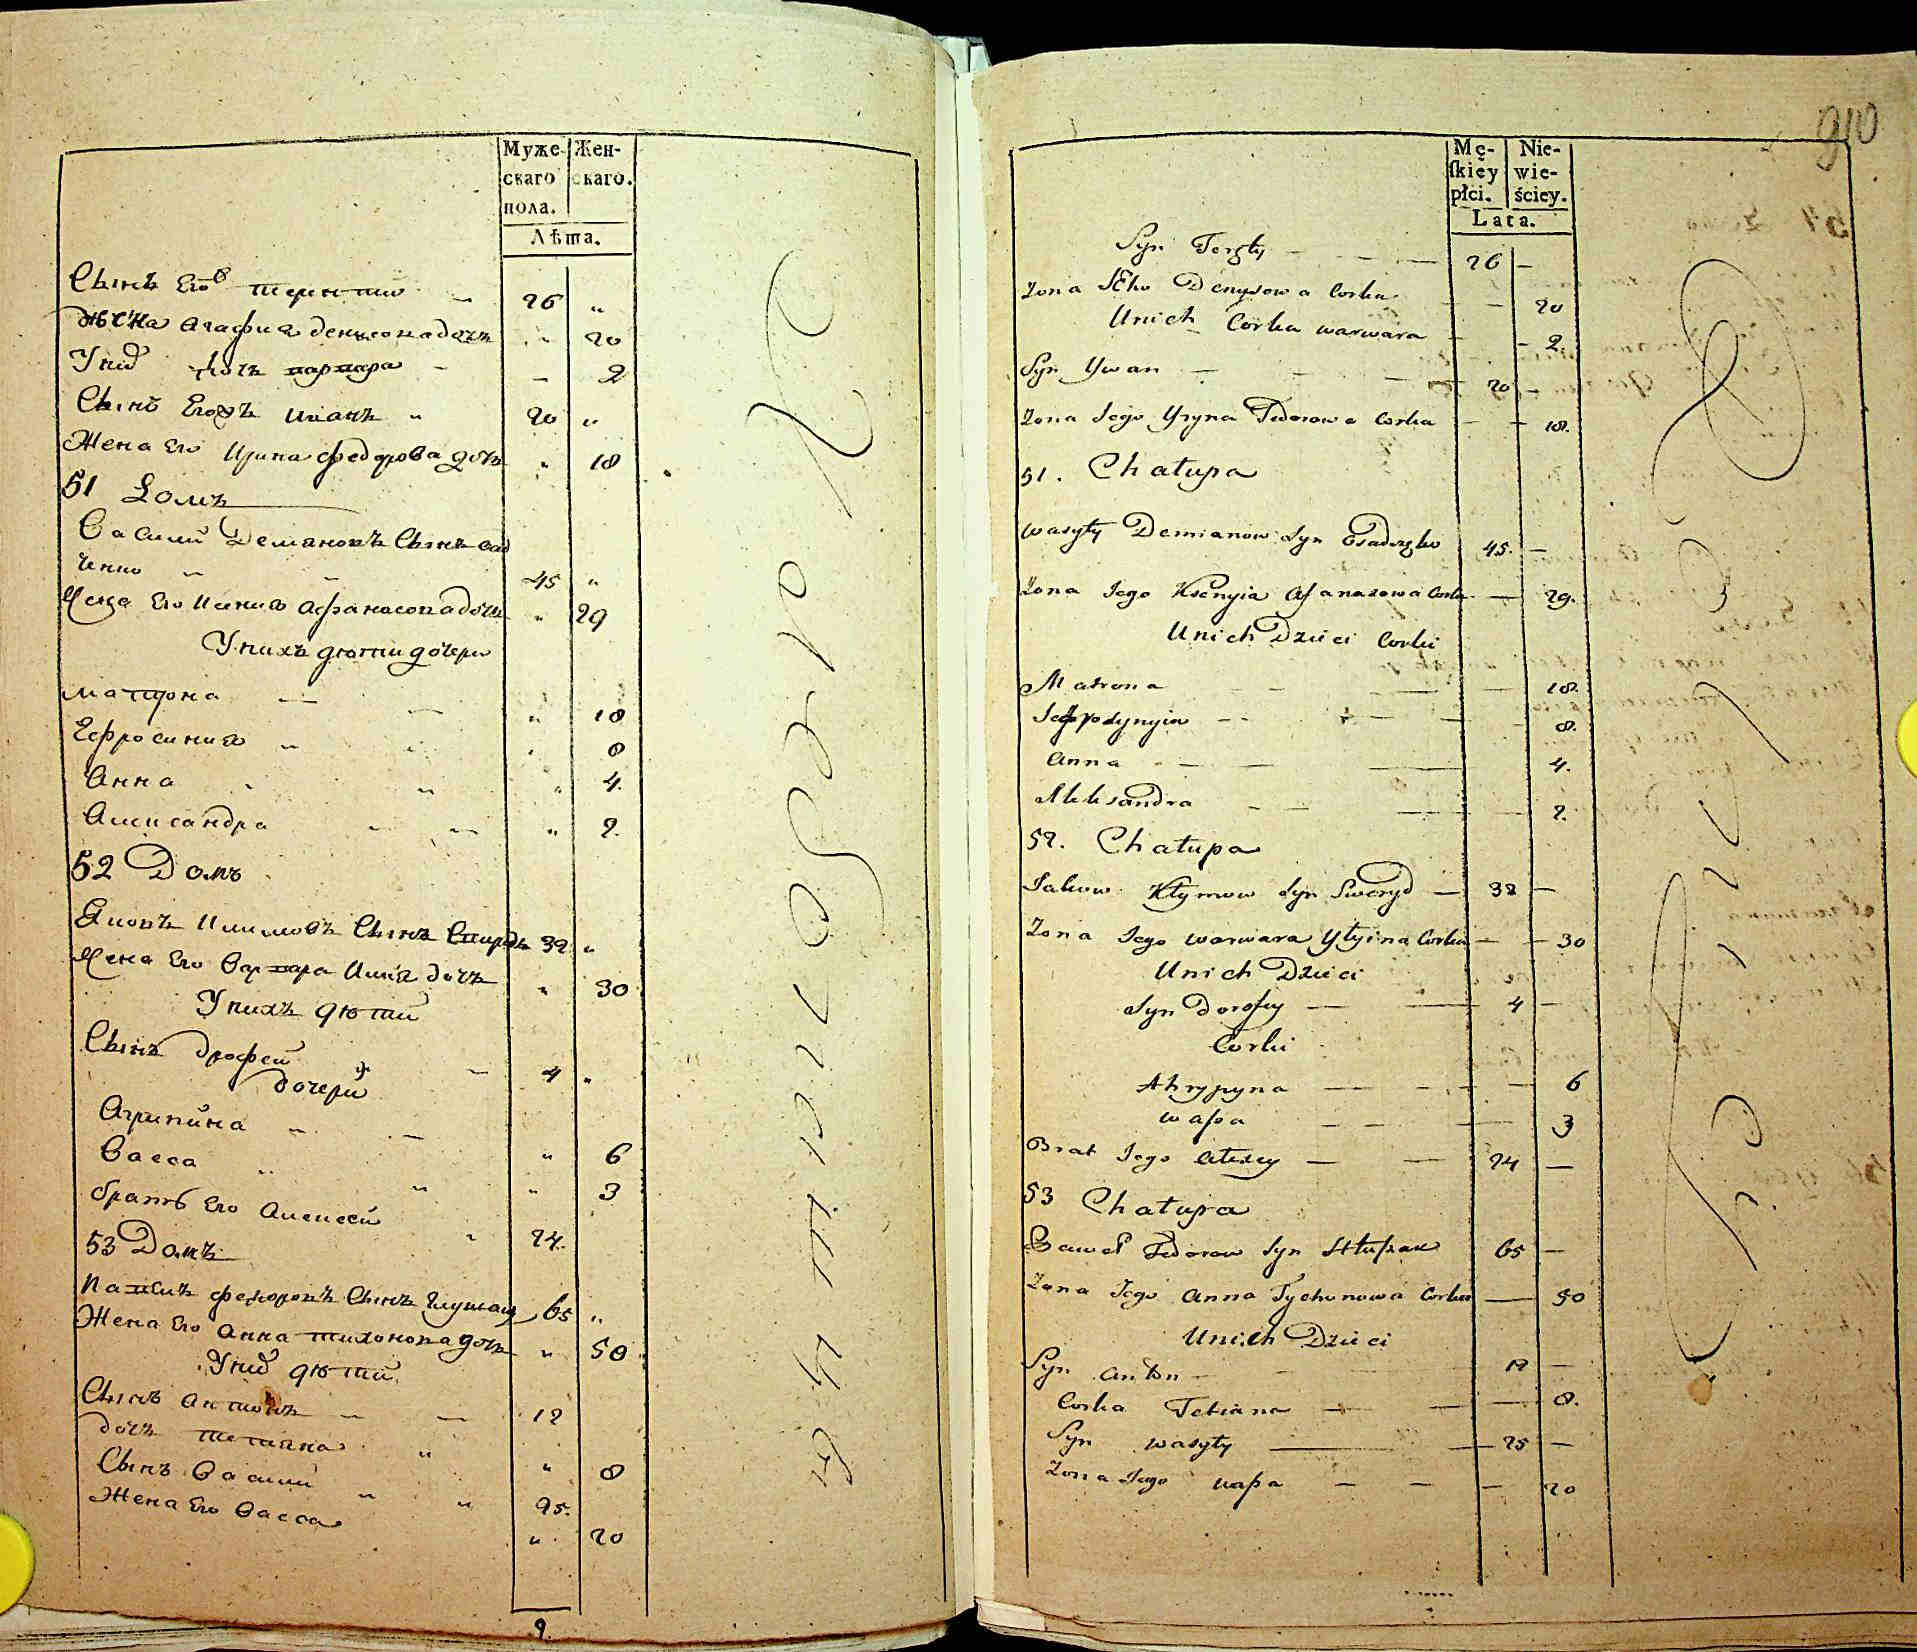 Муже-
скаго
пола.
Жен-
скаго.
Лѣта.
Сынъ Его терентій 26 "
Жена Агафия денисова дочь " 20
У нид дочь варвара - 2
Сынъ Его иванъ " 20 "
Жена Его Ирина федорова дочь " 18
51 Домъ
Василий Демяновъ Сынъ
ченко 45 "
Жена Его Ксения Афанасова дочь " 29
У нихъ дѣти дочери
матрона " 18
Ефросиния " 8
Анна " 4.
Александра " 2.
52 Домъ
Яковъ Климовъ Сынъ Свиридъ 32 "
Жена Его Варвара Илїя дочь " 30
У нихъ дѣти
Сынъ дрофей 4 "
дочери
Агрипина " 6
Васса " 3
братъ Его Алексей 24.
53 Домъ
Павелъ федоровъ Сынъ глушакъ 65 "
Жена Его Анна тихонова дочь " 50
У нид дѣти
Сынъ Антонъ 12
дочь татиана " 8
Сынъ Василий 25.
Жена Его Васса " 20
9
910
Mę-
skiey
płci.
Nie-
wie-
ściey.
Lata.
Syn Terzty 26 —
Zona Jeho Denysowa Corka — 20
Unich Corka warwara — 2.
Syn Ywan 20 —
Zona Jego Yryna Fedorowa Corka — 18.
51. Chałupa
Wasyły Demianow Syn 45. —
Zona Jego Ksenyia Afanasowa Corka — 29.
Unich Dzieci Corki
Matrona — 18.
Jefrozynyia — 8.
Anna — 4.
Aleksandra — 2.
52. Chałupa
Jakow Kłymow Syn Sweryd — 32 —
Zona Jego Warwara Yłyina Corka — 30
Unich Dzieci
Syn Dorofiy — 4 —
Corki
Ahrypyna — 6
Waßa — 3
Brat Jego Alexey — 24 —
53 Chałupa
Paweł Fedorow Syn Hłuszak 65 —
Zona Jego Anna Tychonowa Corka — 50
Unich Dzieci
Syn Anton 12 —
Corka Tetiana — 8.
Syn Wasyły — 25 —
Zona Jego Waßa — 20